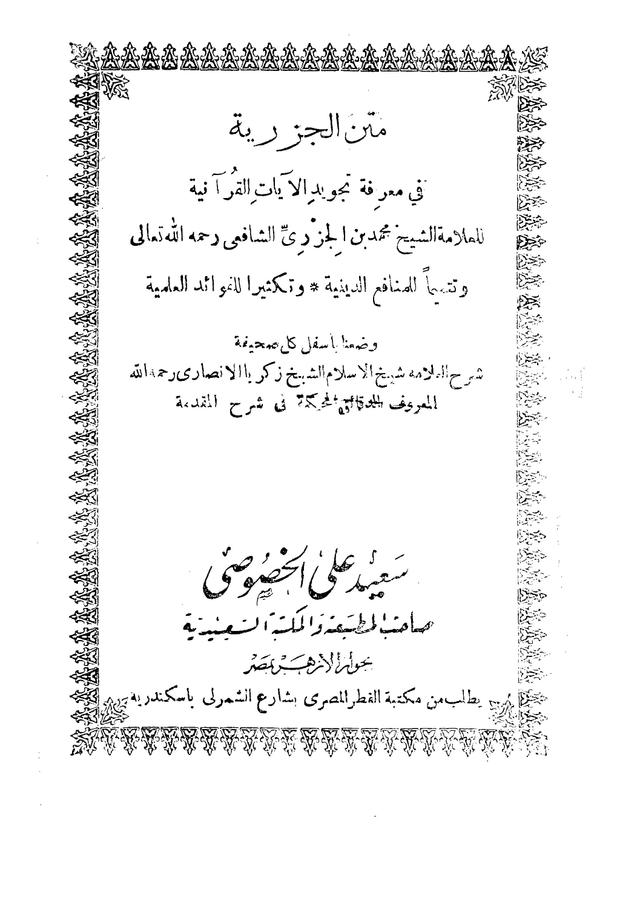 متن الجزرية
في معرفة تجويد الآيات القُرآنية
للعلامة الشيخ محمد بن الجزْرِىّ الشافعى رحمه الله تعالى
وتتميماً للمنافع الدينية * وتكثيرا للفوائد العلمية
وضعنا بأسفل كل صحيفة
شرح العلامه شيخ الاسلام الشيخ زكريا الانصارى رحمه الله
المعروف بالدقائق المحكمة فى شرح المقدمة
سعيد على الخصوصى
صاحب المطبعة والمكتبة السعيدية
بجوار الازهر بمصر
يطالب من مكتبة القطر المصرى بشارع الشمرلى باسكندرية